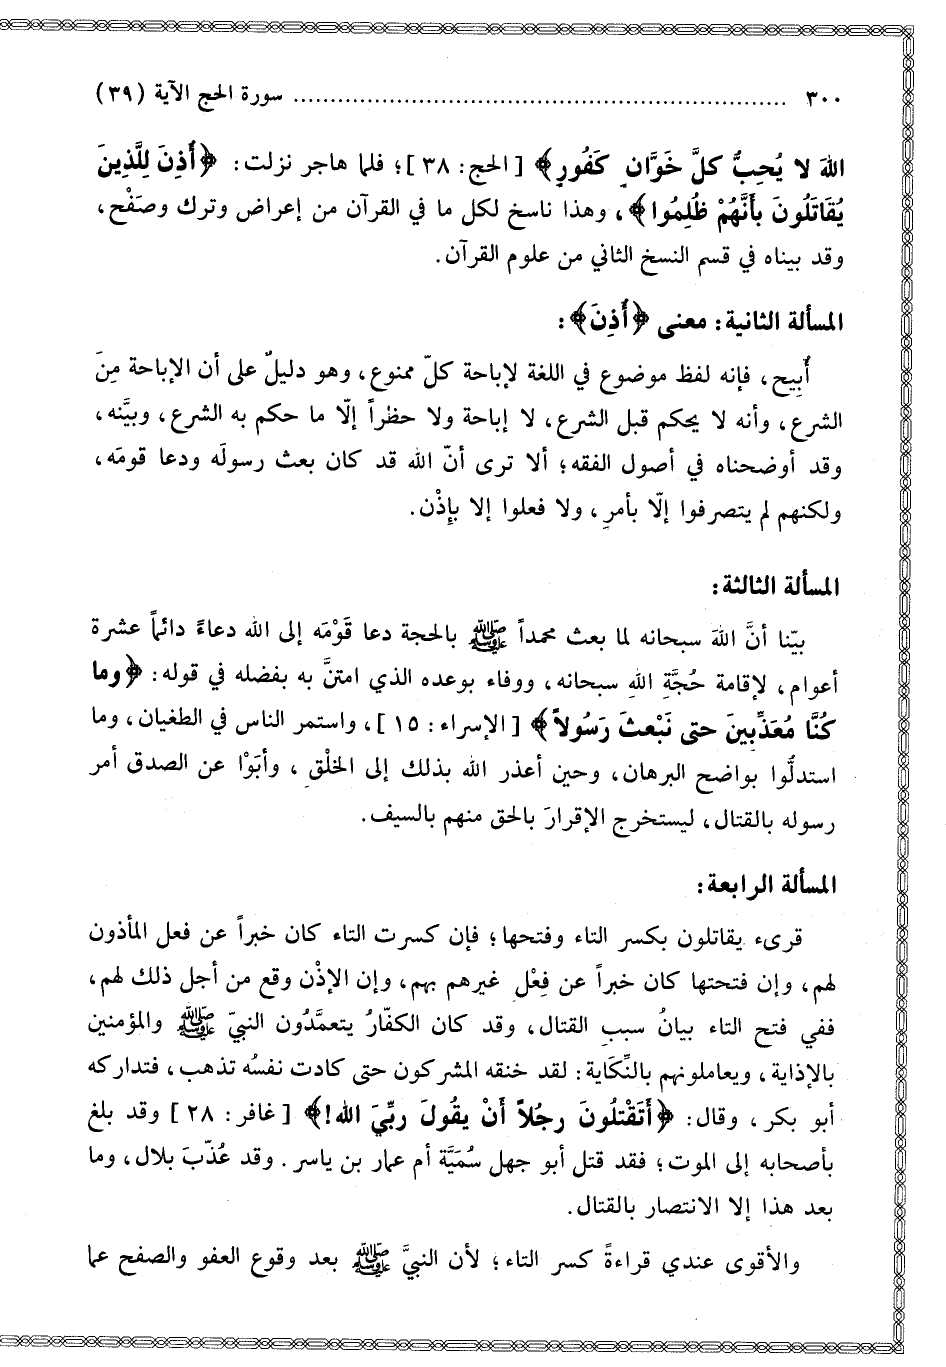 ٣٠٠ ................................................................ سورة الحج الآية (٣٩)
اللهَ لا يُحِبُّ كلَّ خَوَّانٍ كَفُورٍ﴾ [الحج: ٣٨]؛ فلما هاجر نزلت: ﴿أُذِنَ لِلَّذِينَ
يُقَاتَلُونَ بأَنَّهُمْ ظُلِمُوا﴾، وهذا ناسخ لكل ما في القرآن من إعراض وترك وصَفْح،
وقد بيناه في قسم النسخ الثاني من علوم القرآن.
المسألة الثانية: معنى ﴿أُذِنَ﴾:
أُبِيح، فإنه لفظ موضوع في اللغة لإباحة كلّ ممنوع، وهو دليلٌ على أن الإباحة مِنَ
الشرع، وأنه لا يحكم قبل الشرع، لا إباحة ولا حظراً إلّا ما حكم به الشرع، وبيَّنه،
وقد أوضحناه في أصول الفقه؛ ألا ترى أنّ الله قد كان بعث رسولَه ودعا قومَه،
ولكنهم لم يتصرفوا إلّا بأمرِ، ولا فعلوا إلا بإِذْن.
المسألة الثالثة:
بيّنا أنَّ اللهَ سبحانه لما بعث محمداً ﷺ بالحجة دعا قَوْمَه إلى الله دعاءً دائماً عشرة
أعوام، لإقامة حُجَّةِ اللهِ سبحانه، ووفاء بوعده الذي امتنَّ به بفضله في قوله: ﴿وما
كُنَّا مُعَذِّبِينَ حتى نَبْعثَ رَسُولاً﴾ [الإسراء: ١٥]، واستمر الناس في الطغيان، وما
استدلُّوا بواضح البرهان، وحين أعذر الله بذلك إلى الخلْقِ، وأبَوْا عن الصدق أمر
رسوله بالقتال، ليستخرج الإقرارَ بالحق منهم بالسيف.
المسألة الرابعة:
قرىء يقاتلون بكسر التاء وفتحها؛ فإن كسرت التاء كان خبراً عن فعل المأذون
لهم، وإن فتحتها كان خبراً عن فِعْلِ غيرهم بهم، وإن الإذْن وقع من أجل ذلك لهم،
ففي فتح التاء بيانُ سببِ القتال، وقد كان الكفّارُ يتعمَّدُون النبيّ ﷺ والمؤمنين
بالإذاية، ويعاملونهم بالنِّكَاية: لقد خنقه المشركون حتى كادت نفسُه تذهب، فتداركه
أبو بكر، وقال: ﴿أَتَقْتلُونَ رجُلاً أَنْ يقُولَ ربِّيَ الله!﴾ [غافر: ٢٨] وقد بلغ
بأصحابه إلى الموت؛ فقد قتل أبو جهل سُمَيَّة أم عمار بن ياسر. وقد عُذّبَ بلال، وما
بعد هذا إلا الانتصار بالقتال.
والأقوى عندي قراءةُ كسر التاء؛ لأن النبيَّ ﷺ بعد وقوع العفو والصفح عما